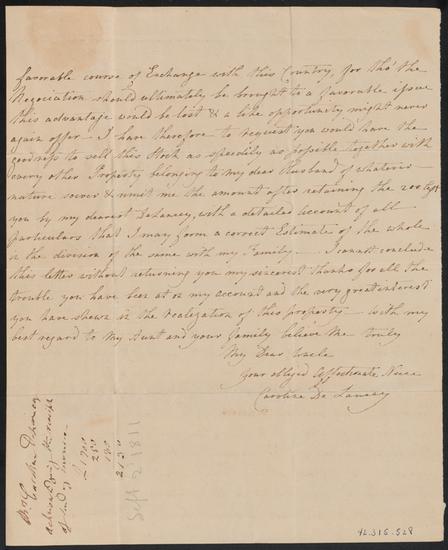 favorable course of Exchange with this Country, for tho' the
Negociation should ultimately be brought to a favorable issue
this advantage would be lost & a like opportunity might never
again offer. I have therefore to request you would have the
goodness to sell this Stock as speedily as possible together with
every other Property belonging to my dear Husband of whatever
nature soever & remit me the amount after retaining the 200
you by my dearest Delancey, with a detailed account of all
particulars that I may form a correct Estimate of the whole
in the division of the same with my Family. I cannot conclude
this letter without returning you my sincerest thanks for all the
trouble you have been at on my account and the very great interest
you have shewn in the realization of this property. with my
best regard to my Aunt and your family believe me truly
My Dear Uncle
Your obliged Affectionate Niece
Caroline De Lancey
Caroline Delancey
acknowledging the receipt
of
£1700
250
180
2130
Sept 2 1811
42.315.528